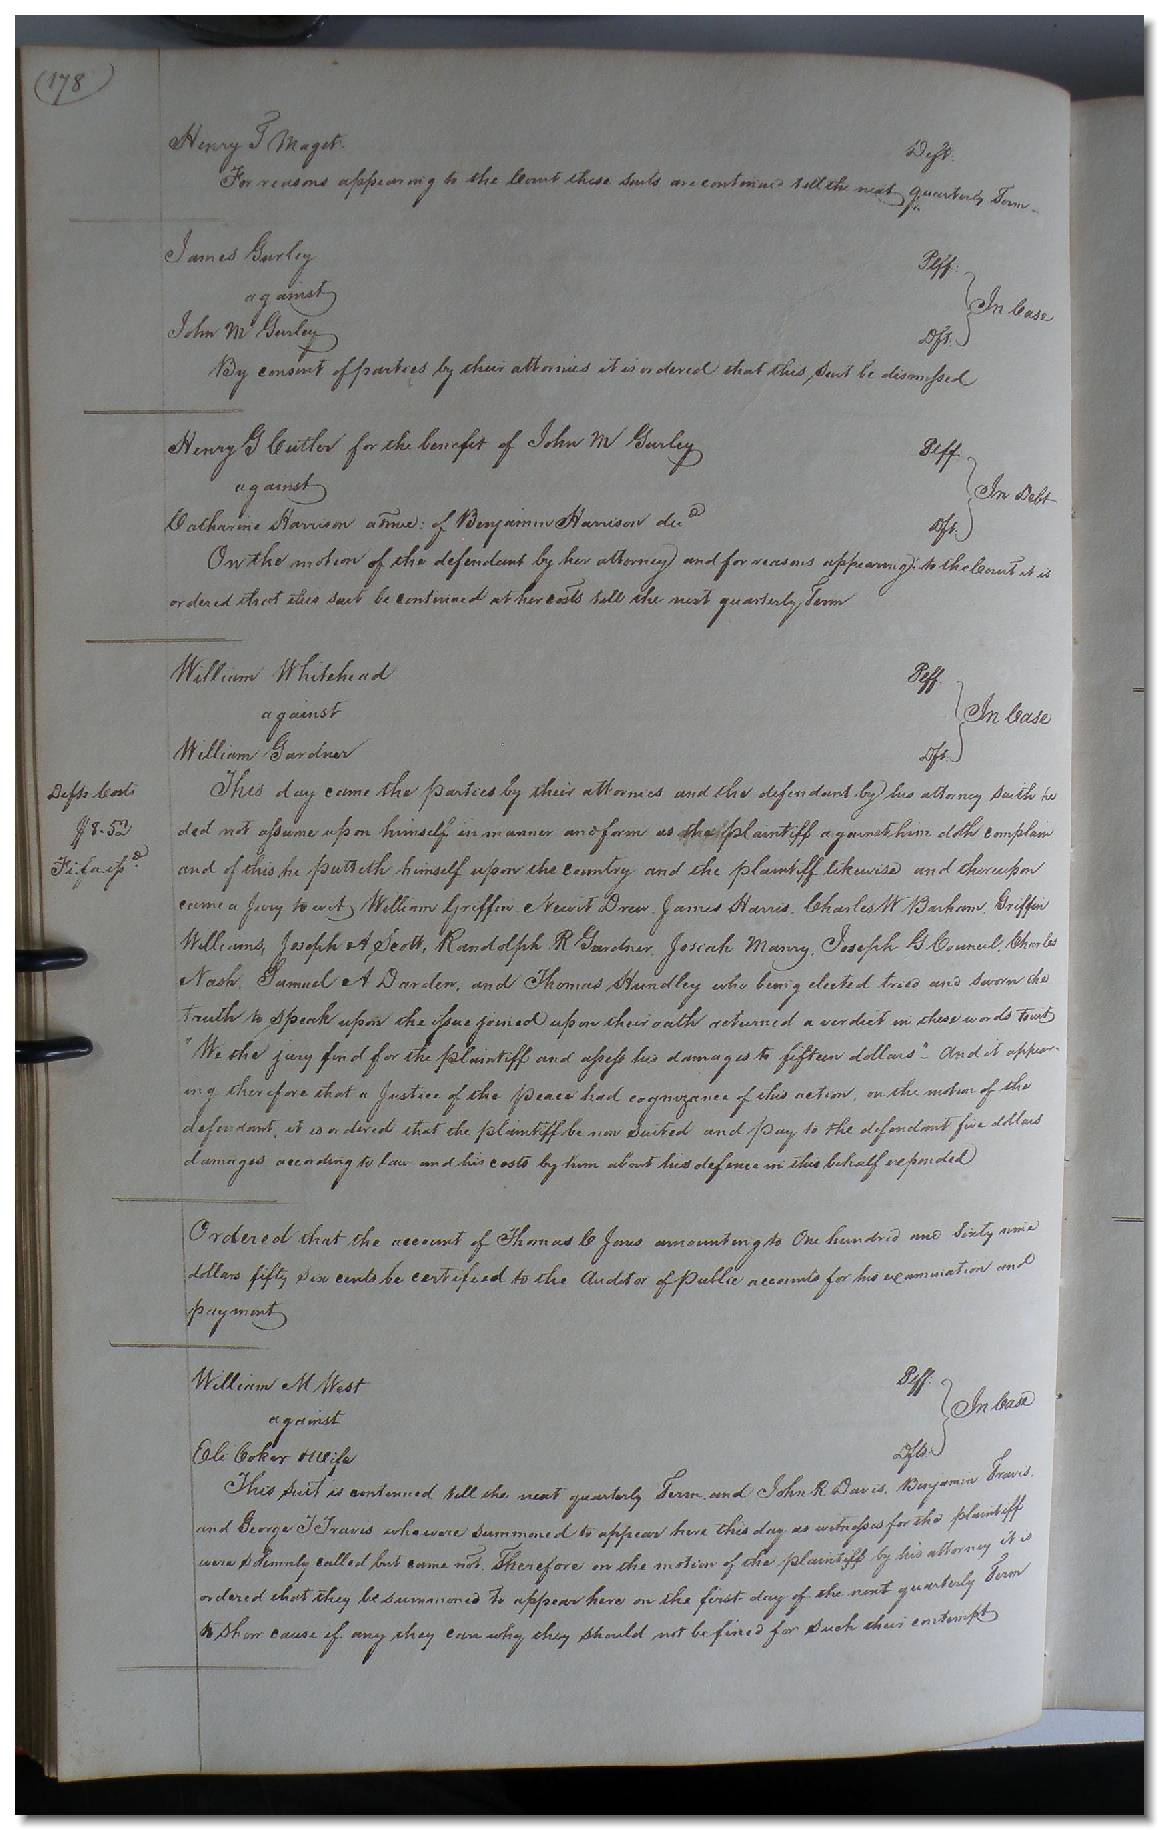 (178)
Henry T Maget. Deft.
For reasons appearing to the Court these suits are continued till the next quarterly Term
James Gurley Plff.
against In Case
John M Gurley Dft.
By consent of parties by their attornies it is ordered that this suit be dismissed
Henry G Cutler for the benefit of John M Gurley Plff.
against In Debt
Catharine Harrison of Benjamin Harrison decd Dft.
On the motion of the defendant by her attorney and for reasons appearing to the Court it is
ordered that this suit be continued at her costs till the next quarterly Term
William Whitehead Plff
against In Case
William Gardner Dft.
This day came the parties by their attornies and the defendant by his attorney saith he
Defts Costs
$8.53
Fi fa issd
did not assume upon himself in manner and form as the plaintiff against him doth complain
and of this he putteth himself upon the country and the plaintiff likewise and thereupon
came a Jury to wit, William Griffin, Newit Drew, James Harris, Charles W Barham, Griffin
Williams, Joseph A Scott, Randolph R Gardner, Josiah Manry, Joseph G Council, Charles
Nash, Samuel A Darden, and Thomas Hundley who being elected tried and sworn the
truth to speak upon the issue joined upon their oath returned a verdict in these words towit
"We the jury find for the plaintiff and assess his damages to fifteen dollars" - And it appear-
ing therefore that a Justice of the Peace had cognizance of this action, on the motion of the
defendant, it is ordered that the plaintiff be non suited and pay to the defendant five dollars
damages according to law and his costs by him about his defence in this behalf expended
Ordered that the account of Thomas C Jones amounting to One hundred and Sixty nine
dollars fifty six cents be certified to the Auditor of Public accounts for his examination and
payment
William M West Plff.
against In Case
Eli Coker & Wife Dfts.
This suit is continued till the next quarterly Term and John R Davis, Benjamin Travis,
and George T Travis who were summoned to appear here this day as witnesses for the plaintiff
were solemnly called but came not. Therefore on the motion of the plaintiff by his attorney it is
ordered that they be summoned to appear here on the first day of the next quarterly Term
to show cause if any they can why they should not be fined for such their contempt